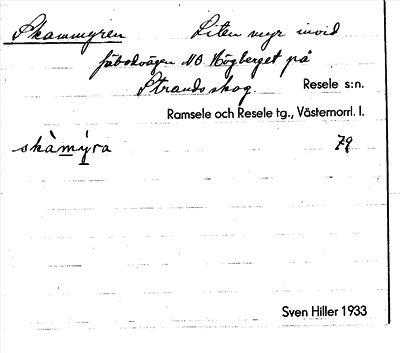 Skammyren Liten myr invid
fäbodvägen NO Högberget på
Strands skog. Resele s:n.
Ramsele och Resele tg., Västernorrl. l.
skàmýra 79
Sven Hiller 1933